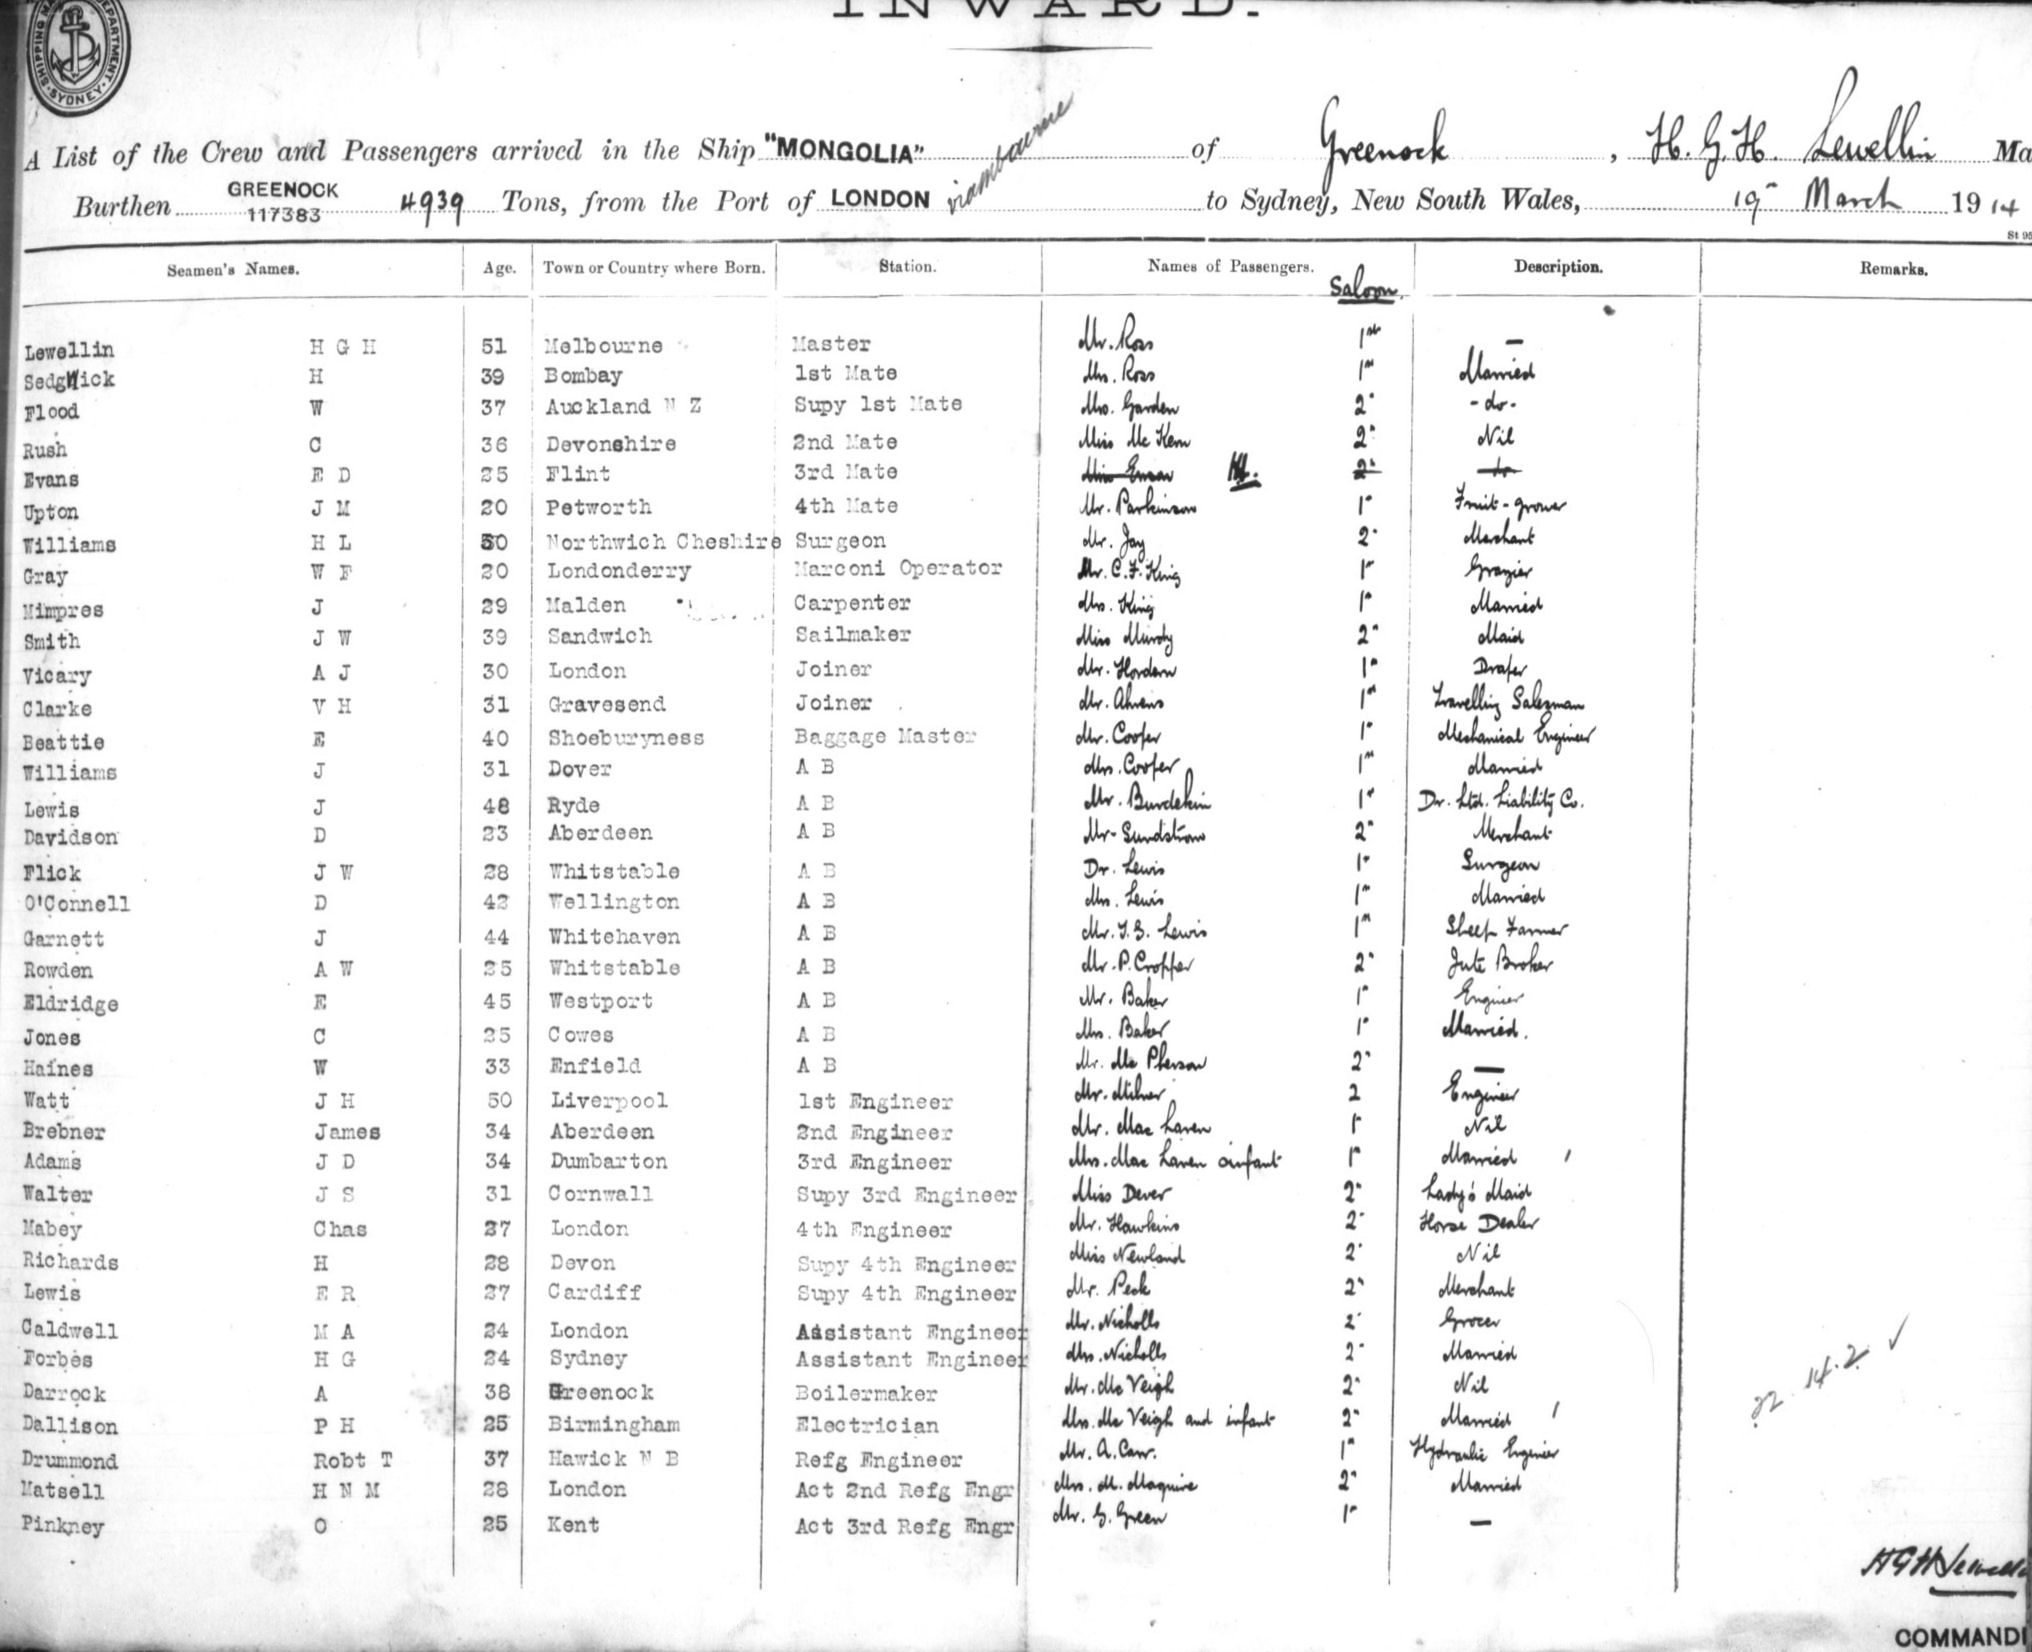 INWARD.
SHIPPING DEPARTMENT SYDNEY
A List of the Crew and Passengers arrived in the Ship "MONGOLIA" of Greenock, H. G. H. Lewellin Ma
Burthen GREENOCK 117383 4939 Tons, from the Port of LONDON to Sydney, New South Wales, 19 March 1914
St 95
Seamen's Names. Age. Town or Country where Born. Station. Names of Passengers. Saloon. Description. Remarks.
Lewellin H G H 51 Melbourne Master Mr. Ross 1st —
Sedgwick H 39 Bombay 1st Mate Mrs. Ross 1st Married
Flood W 37 Auckland N Z Supy 1st Mate Mrs. Garden 2" - do -
Rush C 36 Devonshire 2nd Mate Miss Mc Kern 2" Nil
Evans E D 25 Flint 3rd Mate Miss 2" do
Upton J M 20 Petworth 4th Mate Mr. Parkinson 1" Fruit-grower
Williams H L 30 Northwich Cheshire Surgeon Mr. Jay 2" Merchant
Gray W F 20 Londonderry Marconi Operator Mr. C. F. King 1" Grazier
Mimpres J 29 Malden Carpenter Mrs. King 1" Married
Smith J W 39 Sandwich Sailmaker Miss Murdy 2" Maid
Vicary A J 30 London Joiner Mr. Hordern 1" Draper
Clarke V H 31 Gravesend Joiner Mr. Ahrens 1" Travelling Salesman
Beattie E 40 Shoeburyness Baggage Master Mr. Cooper 1" Mechanical Engineer
Williams J 31 Dover A B Mrs. Cooper 1" Married
Lewis J 48 Ryde A B Mr. Burdekin 1" Dr. Ltd. Liability Co.
Davidson D 23 Aberdeen A B Mr. Sundstrom 2" Merchant
Flick J W 28 Whitstable A B Dr. Lewis 1" Surgeon
O'Connell D 42 Wellington A B Mrs. Lewis 1" Married
Garnett J 44 Whitehaven A B Mr. Lewis 1" Sheep Farmer
Rowden A W 25 Whitstable A B Mr. P. Cropper 2" Jute Broker
Eldridge E 45 Westport A B Mr. Baker 1" Engineer
Jones C 25 Cowes A B Mrs. Baker 1" Married.
Haines W 33 Enfield A B Mr. Mc Pherson 2" —
Watt J H 50 Liverpool 1st Engineer Mr. Milner 2 Engineer
Brebner James 34 Aberdeen 2nd Engineer Mr. Mac Laren 1" Nil
Adams J D 34 Dumbarton 3rd Engineer Mrs. Mac Laren & infant 1" Married
Walter J S 31 Cornwall Supy 3rd Engineer Miss Dever 2" Lady's Maid
Mabey Chas 27 London 4th Engineer Mr. Hawkins 2" Horse Dealer
Richards H 28 Devon Supy 4th Engineer Miss Newland 2" Nil
Lewis E R 27 Cardiff Supy 4th Engineer Mr. Peck 2" Merchant
Caldwell M A 24 London Assistant Engineer Mr. Nicholls 2" Grocer
Forbes H G 24 Sydney Assistant Engineer Mrs. Nicholls 2" Married
Darrock A 38 Greenock Boilermaker Mr. Mc Veigh 2" Nil
Dallison P H 25 Birmingham Electrician Mrs. Mc Veigh and infant 2" Married
Drummond Robt T 37 Hawick N B Refg Engineer Mr. A. Carr. 1" Hydraulic Engineer
Matsell H N M 28 London Act 2nd Refg Engr Mrs. M. Maguire 2" Married
Pinkney O 25 Kent Act 3rd Refg Engr Mr. G. Green 1" —
22 . 14 . 2 ✓
H G H Lewellin
COMMANDE